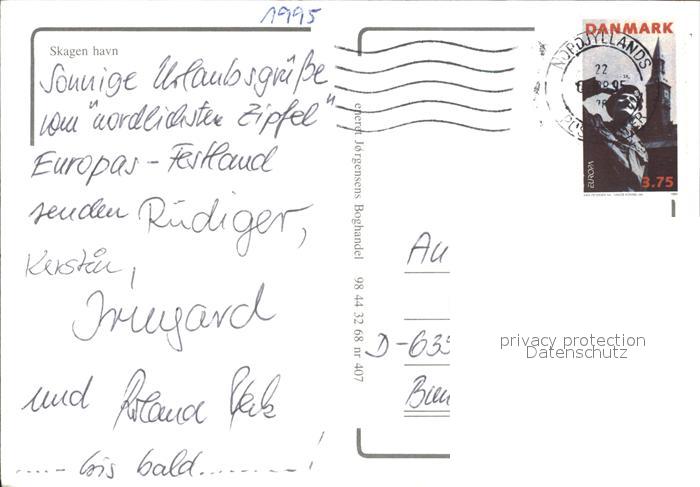 1995
Skagen havn
Sonnige Urlaubsgrüße
vom "nördlichsten Zipfel"
Europas - Festland
senden Rüdiger,
Kerstin,
Irmgard
und Roland
..... bis bald.........!
eneret Jørgensens Boghandel 98 44 32 68 nr 407
DANMARK
NORDJYLLANDS
22
EUROPA
3.75
An
D-635
privacy protection
Datenschutz